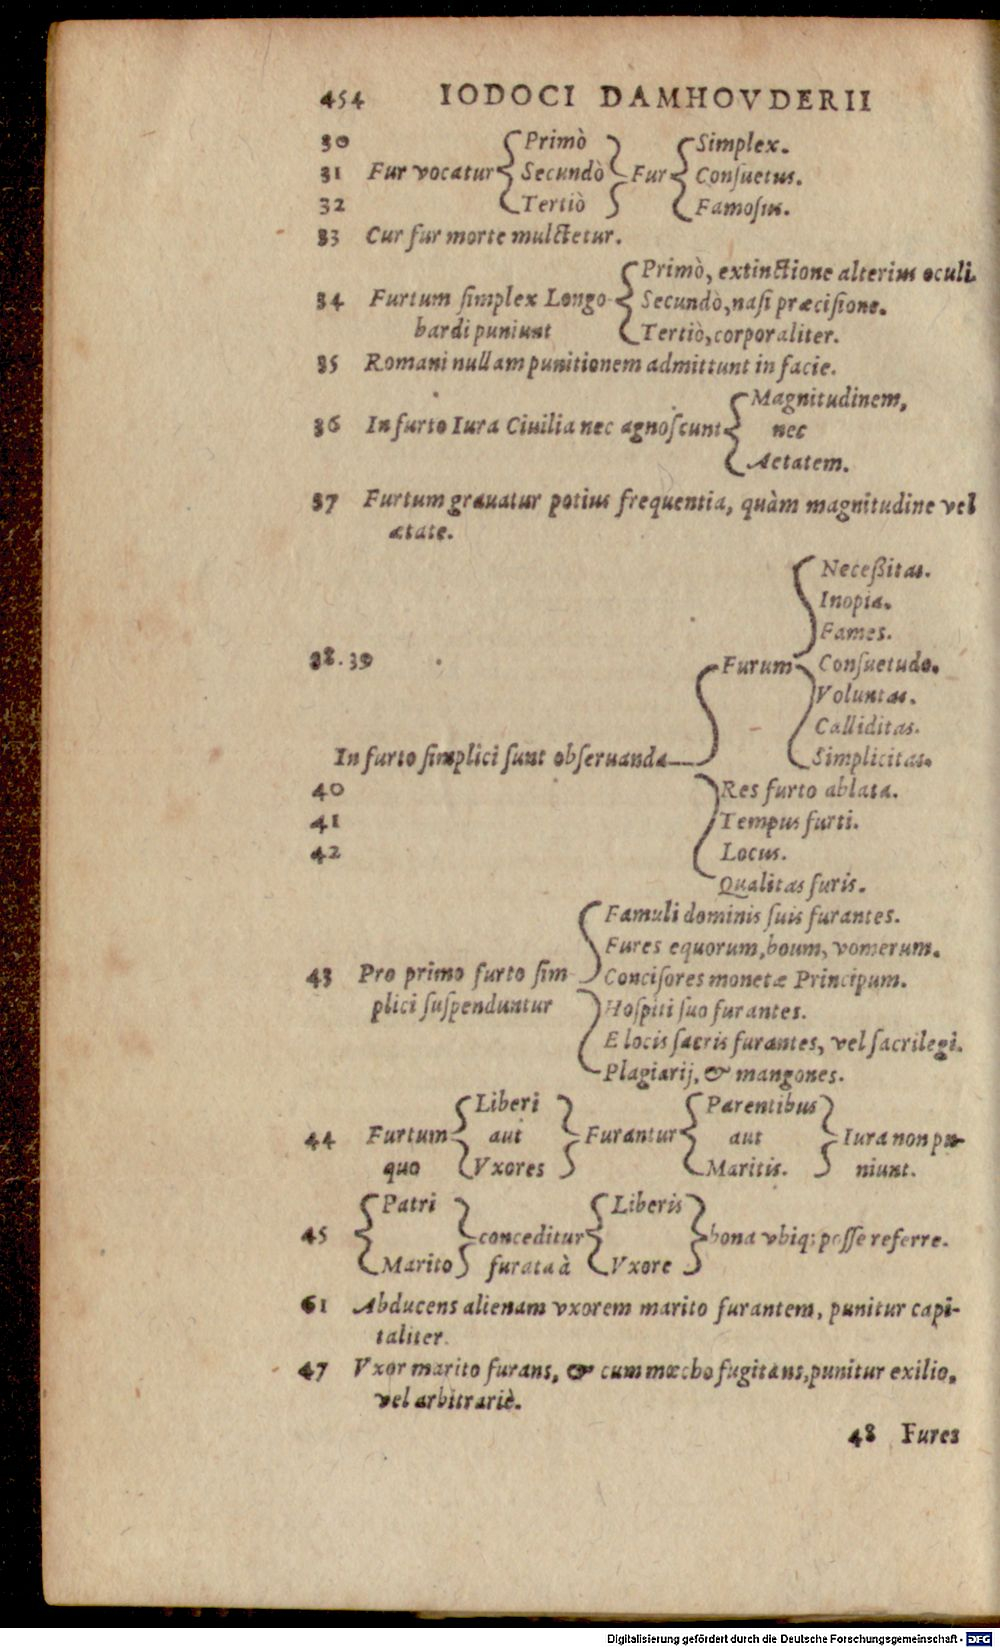 454 IODOCI DAMHOVDERII
30 Primò Simplex.
31 Fur vocatur Secundò Fur Conſuetus.
32 Tertiò Famoſus.
33 Cur fur morte mulctetur.
Primò, extinctione alterius oculi.
34 Furtum ſimplex Longo- Secundò, naſi præciſione.
bardi puniunt Tertiò, corporaliter.
35 Romani nullam punitionem admittunt in facie.
Magnitudinem,
36 In furto Iura Ciuilia nec agnoſcunt nec
Aetatem.
37 Furtum grauatur potius frequentia, quàm magnitudine vel
ætate.
Neceßitas.
Inopia.
Fames.
38.39 Furum Conſuetudo.
Voluntas.
Calliditas.
In furto ſimplici ſunt obſeruanda Simplicitas.
40 Res furto ablata.
41 Tempus furti.
42 Locus.
Qualitas furis.
Famuli dominis ſuis furantes.
Fures equorum, boum, vomerum.
43 Pro primo furto ſim- Conciſores monetæ Principum.
plici ſuſpenduntur Hoſpiti ſuo furantes.
E locis ſacris furantes, vel ſacrilegi.
Plagiarij, & mangones.
Liberi Parentibus
44 Furtum aut Furantur aut Iura non pu-
quo Vxores Maritis. niunt.
Patri Liberis
45 conceditur bona vbiq; poſſe referre.
Marito furata à Vxore
61 Abducens alienam vxorem marito furantem, punitur capi-
taliter.
47 Vxor marito furans, & cum mœcho fugitans, punitur exilio,
vel arbitrariè.
48 Fures
Digitalisierung gefördert durch die Deutsche Forschungsgemeinschaft - DFG